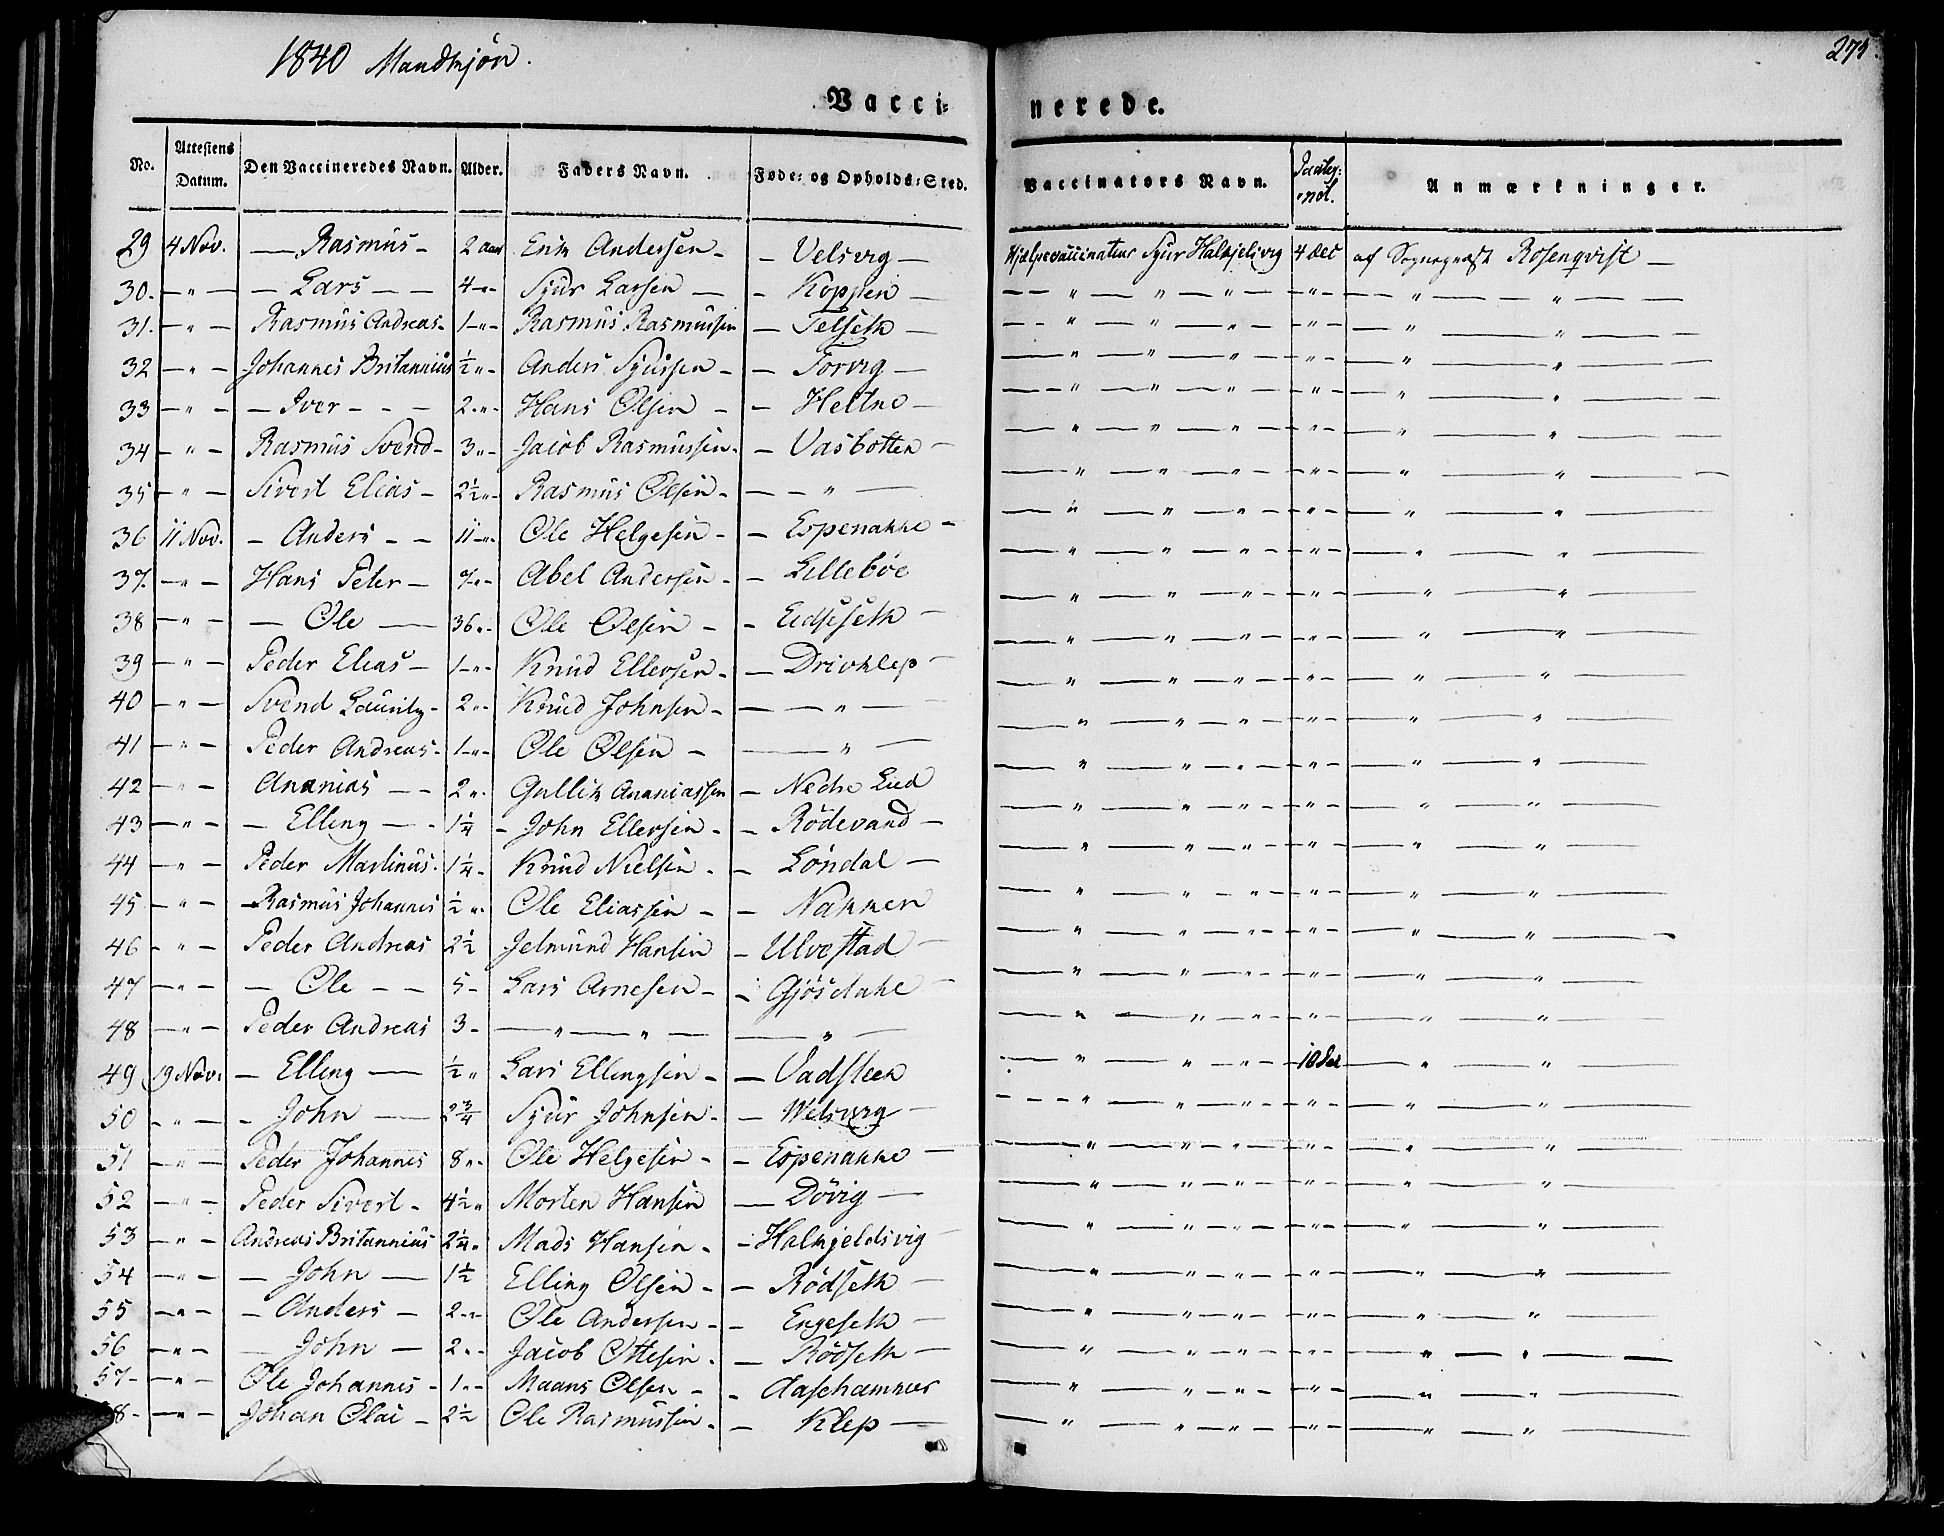 1840 Mandkjøn.
273.
Vacci=
nerede.
No. Attestens Datum. Den Vaccineredes Navn. Alder. Faders Navn. Føde= og Opholds=Sted. Vaccinators Navn. Anmærkninger.
29 4 Nov. — Rasmus - 2 aar Erik Andersen - - Velsvig — Hjelpevaccinateur Sjur Halkjelsvig 4 Dec af Sogneprest Rosenqvist —
30. — " — — Lars — — 4 - " - Sjur Larsen — - Koppen — — " — " — " — — " — — " — " —
31. — " — Rasmus Andreas - 1 - " - Rasmus Rasmussen — Telseth — — " — " — " — — " — — " — " —
32 — " — Johannes Britannius ½ " - Anders Sjursen - — Torvig — — " — " — " — — " — — " — " —
33 — " — — Iver - - — 2 - " - Hans Olsen - - Heltne — — " — " — " — — " — — " — " —
34 — " — Rasmus Svend - 3 " - Jacob Rasmussen - — Vasbotten — — " — " — " — — " — — " — " —
35 — " — Sivert Elias - 2½ " - Rasmus Olsen - — - " — — " — " — " — — " — — " — " —
36 11 Nov. — Anders - — 11 - " - Ole Helgesen - - Espenakke - — " — " — " — — " — — " — " —
37. — " — Hans Peter — 7 " - Abel Andersen - - Lillebøe — " — " — " — — " — — " — " —
38 — " — — Ole — 36 " - Ole Olsen - - Eidseseth — — " — " — " — — " — — " — " —
39 — " — Peder Elias - 1 - " - Knud Ellersen - — Drivklep — — " — " — " — — " — — " — " —
40 — " — Svend Lauritz - 2 " - Knud Johnsen - — " — — " — " — " — — " — — " — " —
41 — " — Peder Andreas - 1 - " - Ole Olsen - — " — — " — " — " — — " — — " — " —
42 — " — Ananias — - 2 " - Gullik Ananiassen — Nedre Eid — " — " — " — — " — — " — " —
43 — " — — Elling — - 1¼ - John Ellersen - - Rödevand — — " — " — " — — " — — " — " —
44 — " — Peder Martinus. 1¼ - Knud Nielsen - - Löndal — — " — " — " — — " — — " — " —
45 — " — Rasmus Johannes ½ " - Ole Eliassen - - Nakken — " — " — " — — " — — " — " —
46 - " — Peder Andreas 2½ Jelmund Hansen - Ulvestad — — " — " — " — — " — — " — " —
47 — " — — Ole - — 5 - Lars Arnesen - - Gjösdahl — — " — " — " — — " — — " — " —
48 — " — Peder Andreas 3 - — " — " — — " — — " — " — " — — " — — " — " —
49 19 Nov. — Elling — ½ " Lars Ellingsen - — Vadsteen — " — " — " — 10 Dec — " — " —
50 - " — - John — 2¾ Sjur Johnsen - — Welsvig — — " — " — " — — " — — " — " —
51 — " — Peder Johannes 8 " - Ole Helgesen - - Espenakke — — " — " — " — — " — — " — " —
52 — " — Peder Sivert - 4½ " Morten Hansen — Dövig — — " — " — " — — " — — " — " —
53 — " — Andreas Britannius 2¼ " Mads Hansen - - Halkjeldsvig — — " — " — " — — " — — " — " —
54 — " — — John — 1½ Elling Olsen - - Rödseth — — " — " — " — — " — — " — " —
55 — " — — Anders — 2 - " - Ole Andersen - - Engeseth — — " — " — " — — " — — " — " —
56 — " — — John — 2 " - Jacob Ottesen - — Rödseth — — " — " — " — — " — — " — " —
57 - — " — Ole Johannes - 1 " - Maans Olsen - - Aasehammer — " — " — " — — " — — " — " —
58 - — " — Johan Olai - 2½ Ole Rasmussen - — Klep — — " — " — " — — " — — " — " —